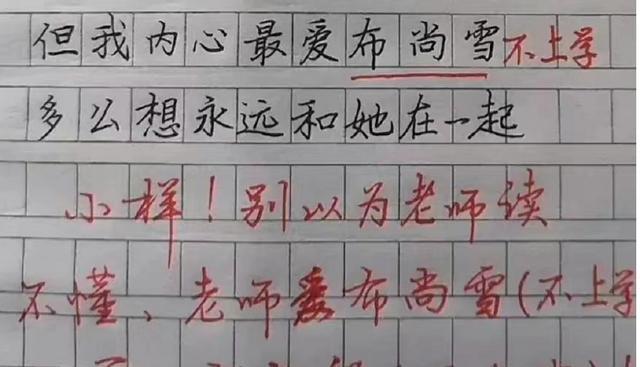 但我内心最爱布尚雪不上学
多么想永远和她在一起
小样！别以为老师读
不懂、老师爱布尚雪(不上学